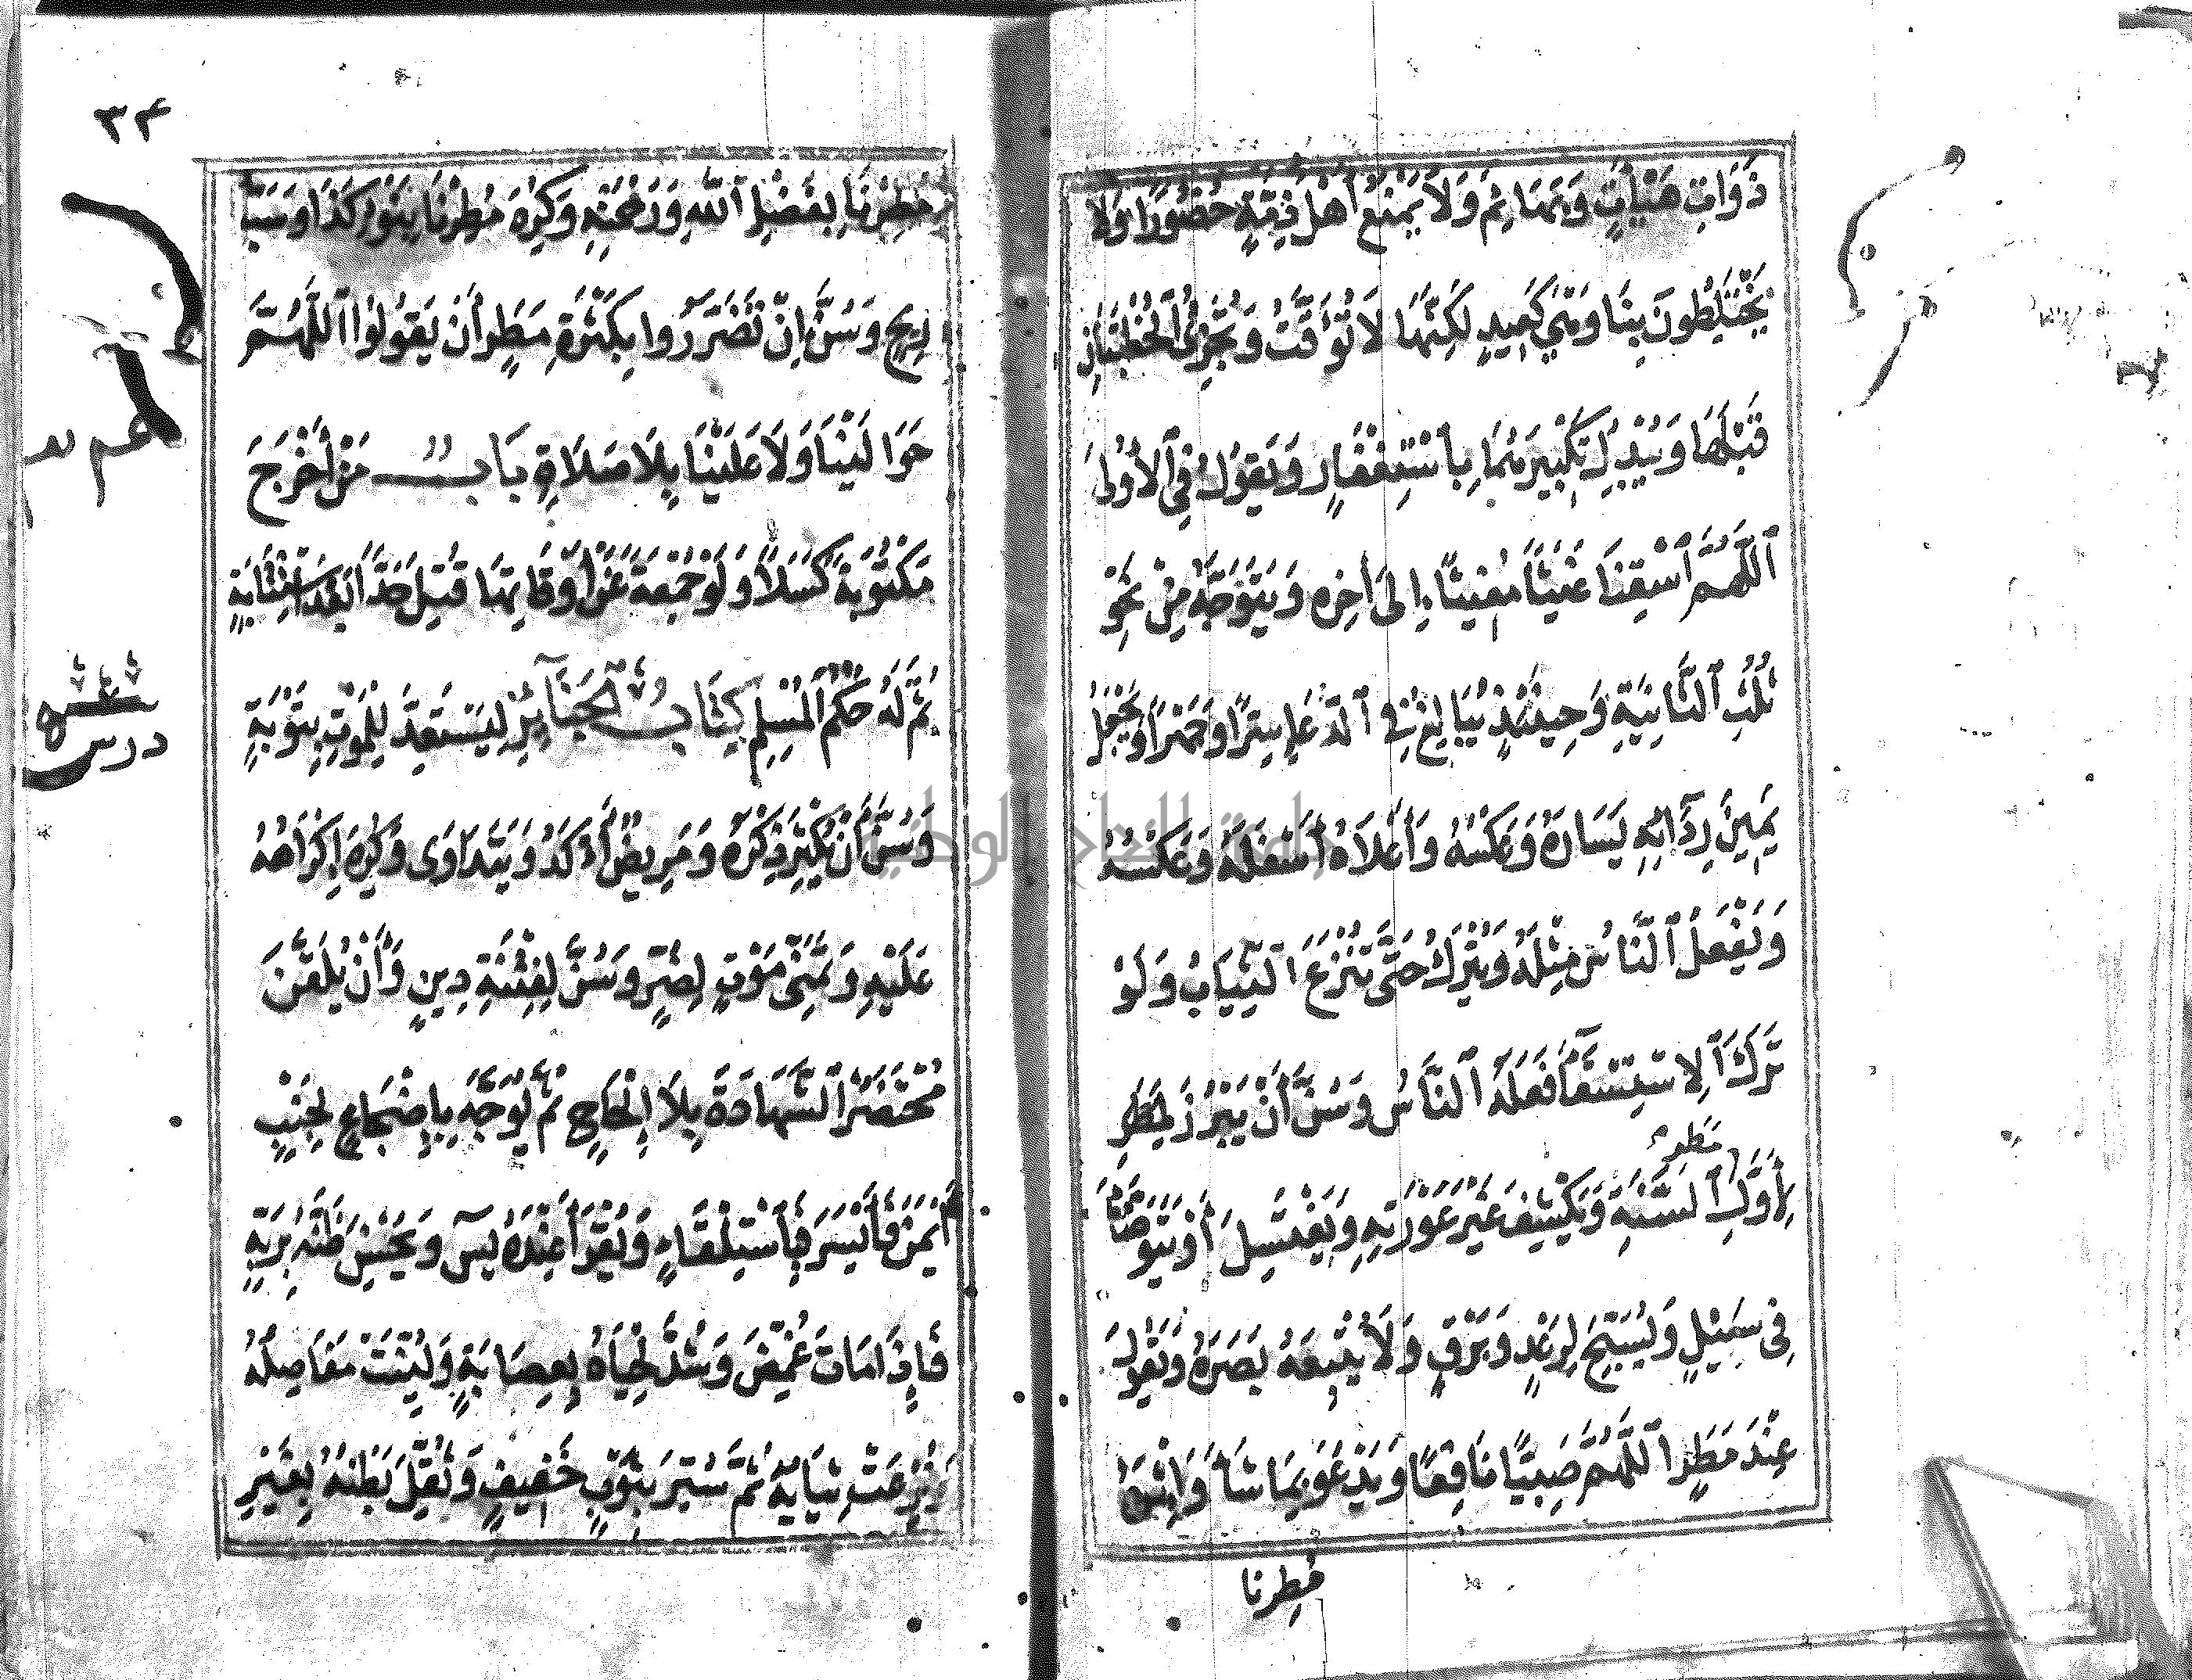 ذَوَاتِ هَيْأَتٍ وَبَهَائِمٌ وَلَا يُمْنَعُ أَهْلُ ذِمَّةٍ حُضُورًا وَلَا
يَخْتَلِطُونَ بِنَا وَهِيَ كَعِيدٍ لَكِنَّهَا لَا تُؤَقَّتُ وَتُجْزِئُ الْخُطْبَتَانِ
قَبْلَهَا وَيُبْدِلُ تَكْبِيرَهُمَا بِاسْتِغْفَارٍ وَيَقُولُ فِي الْأُولَى
اَللَّهُمَّ اسْقِنَا غَيْثًا مُغِيثًا إِلَى أَخِرِهِ وَيَتَوَجَّهُ مِنْ نَحْوِ
ثُلُثِ الثَّانِيَةِ وَحِينَئِذٍ يُبَالِغُ فِي الدُّعَاءِ سِرًّا وَجَهْرًا وَيَجْعَلُ
يَمِينَ رِدَائِهِ يَسَارَهُ وَعَكْسُهُ وَأَعْلَاهُ أَسْفَلَهُ وَعَكْسُهُ
وَيَفْعَلُ النَّاسُ مِثْلَهُ وَيُتْرَكُ حَتَّى تُنْزَعَ الثِّيَابُ وَلَوْ
تَرَكَ الِاسْتِسْقَآءَ فَعَلَهُ النَّاسُ وَسُنَّ أَنْ يَبْرُزَ لِمَطَرِ
مَطَرِ
لِأَوَّلِ السَّنَةِ وَيَكْشِفَ غَيْرَ عَوْرَتِهِ وَيَغْتَسِلَ أَوْ يَتَوَضَّأَ
فِي سَيْلٍ وَيُسَبِّحَ لِرَعْدٍ وَبَرْقٍ وَلَا يُتْبِعَهُ بَصَرَهُ وَيَقُولَ
عِنْدَ مَطَرٍ اللَّهُمَّ صَيِّبًا نَافِعًا وَيَدْعُوَ بِمَا شَاءَ وَإِثْرَهُ
مُطِرنا
٣٤
مُطِرْنَا بِفَضْلِ اللهِ وَرَحْمَتِهِ وَكُرِهَ مُطِرْنَا بِنَوْءِ كَذَا وَسَبُّ
رِيحٍ وَسُنَّ إِنْ تَضَرَّرُوا بِكَثْرَةِ مَطَرٍ أَنْ يَقُولُوا اللَّهُمَّ
حَوَالَيْنَا وَلَا عَلَيْنَا بِلَا صَلَاةٍ بَابُ مَنْ أَخْرَجَ
مَكْتُوبَةً كَسَلًا وَلَوْ جُمْعَةً عَنْ أَوْقَاتِهَا قُتِلَ حَدًّا بَعْدَ اسْتِتَابَةٍ
ثُمَّ لَهُ حُكْمُ الْمُسْلِمِ كِتَابُ الْجَنَآئِزِ لِيَسْتَعِدَّ لِلْمَوْتِ بِتَوْبَةٍ
وَسُنَّ أَنْ يُكْثِرَ ذِكْرَهُ وَمَرِيضٌ أَكَدُ وَيَتَدَاوَى وَكُرِهَ إِكْرَاهُهُ
عَلَيْهِ وَتَمَنِّي مَوْتٍ لِضُرٍّ وَسُنَّ لِفِتْنَةِ دِينٍ وَأَنْ يُلَقَّنَ
مُحْتَضَرٌ الشَّهَادَةَ بِلَا إِلْحَاحٍ ثُمَّ يُوَجَّهَ بِإِضْجَاعٍ لِجَنْبٍ
أَيْمَنَ فَأَيْسَرَ فَاسْتِلْقَاءٍ وَيُقْرَأَ عِنْدَهُ يس وَيُحْسِنَ ظَنَّهُ بِرَبِّهِ
فَإِذَا مَاتَ غُمِّضَ وَشُدَّ لِحْيَاهُ بِعِصَابَةٍ وَلُيِّنَتْ مَفَاصِلُهُ
وَنُزِعَتْ ثِيَابُهُ ثُمَّ سُتِرَ بِثَوْبٍ خَفِيفٍ وَثُقِّلَ بَطْنُهُ بِغَيْرِ
درس
جامعة النجاح الوطنية